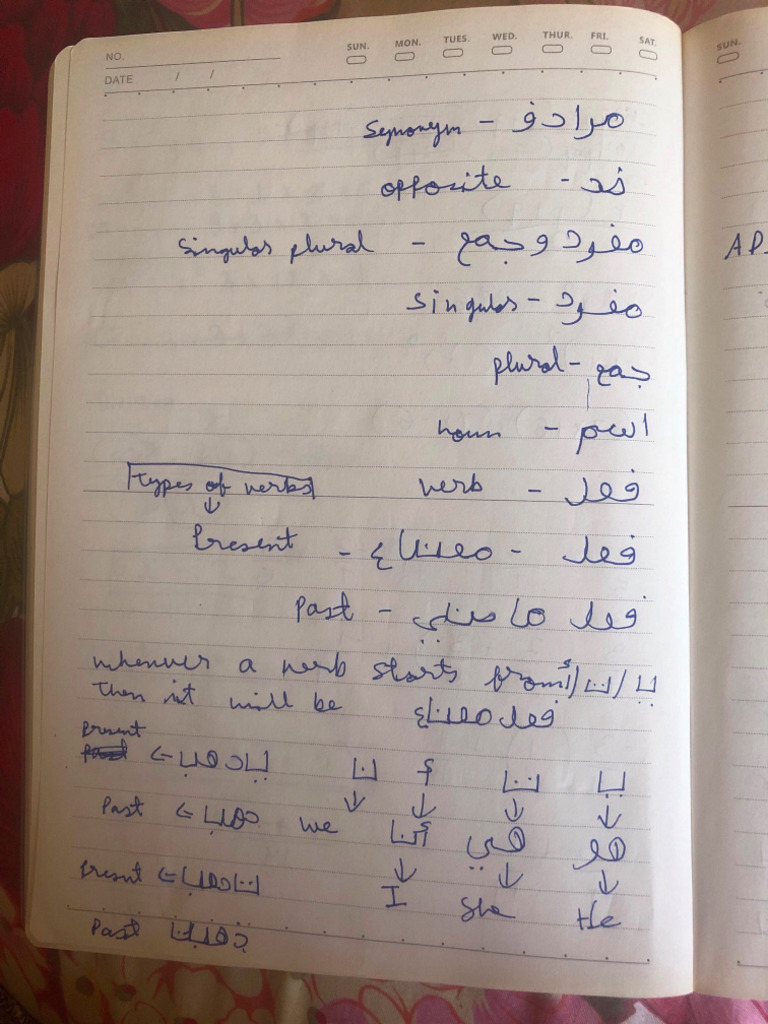 NO.
DATE / /
SUN. MON. TUES. WED. THUR. FRI. SAT.
SUN.
مرادف - Synonym
ضد - opposite
مفرد و جمع - Singular plural
مفرد - Singular
جمع - plural
اسم - noun
فعل - verb
Types of verbs
فعل - مضارع - Present
فعل ماضي - Past
whenever a verb starts from يـ/تـ/أ
then it will be فعل مضارع
يـ تـ أ نـ
هو هي أنا we
He She I
يذهب → Present
ذهب → Past
تذهب → Present
ذهبت Past